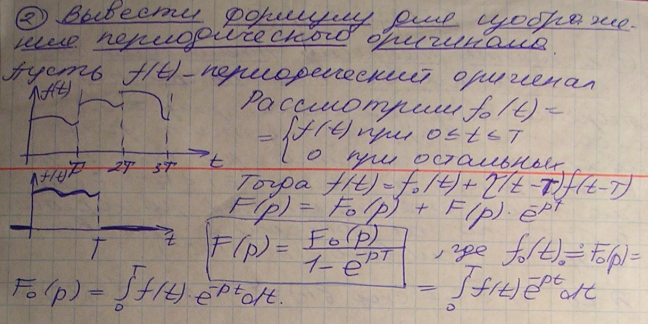 ② Вывести формулу для изображе-
ния периодического оригинала.
Пусть f(t) - периодический оригинал
f(t)
T 2T 3T t
Рассмотрим f₀(t) =
= { f(t) при 0 ≤ t ≤ T
0 при остальных
f(t)
T t
Тогда f(t) = f₀(t) + η(t-T)f(t-T)
F(p) = F₀(p) + F(p)·e^{-pT}
F(p) = F₀(p) / (1 - e^{-pT}) , где f₀(t) ≓ F₀(p) =
= ∫₀ᵀ f(t) e^{-pt} dt
F₀(p) = ∫₀ᵀ f(t)·e^{-pt} dt.